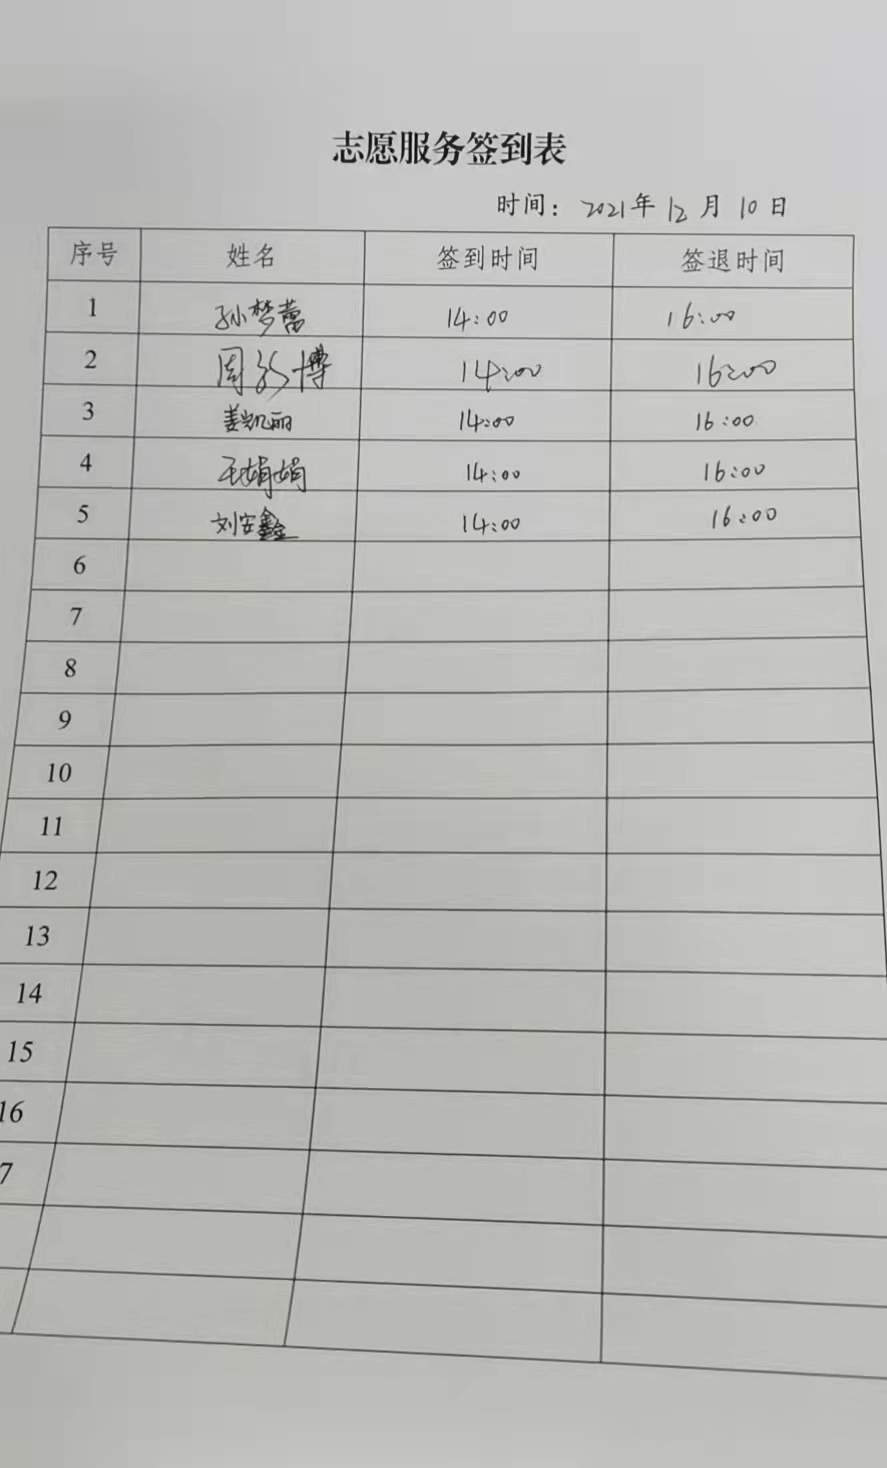 志愿服务签到表
时间: 2021年 12月 10日
序号 姓名 签到时间 签退时间
1 孙梦蕾 14:00 16:00
2 周 博 14:00 16:00
3 姜凯丽 14:00 16:00
4 王娟娟 14:00 16:00
5 刘安鑫 14:00 16:00
6
7
8
9
10
11
12
13
14
15
16
7